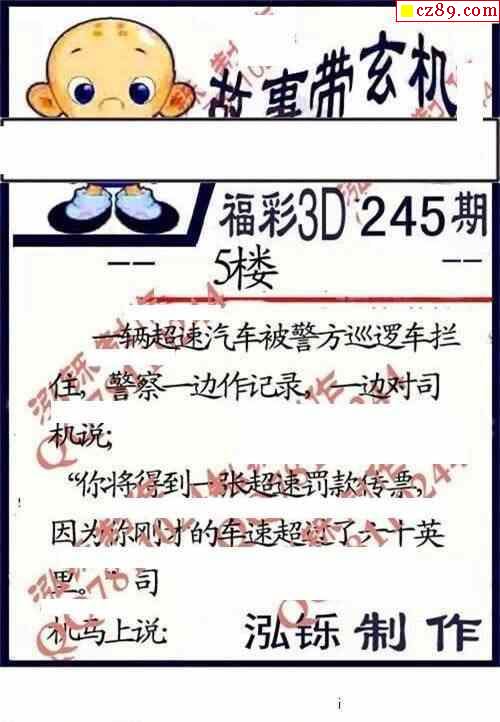 cz89.com
故事带玄机
福彩3D 245期
-- 5楼 --
一辆超速汽车被警方巡逻车拦
住，警察一边作记录，一边对司
机说；
“你将得到一张超速罚款传票，
因为你刚才的车速超过了六十英
里。”司
机马上说：
泓铄制作
i